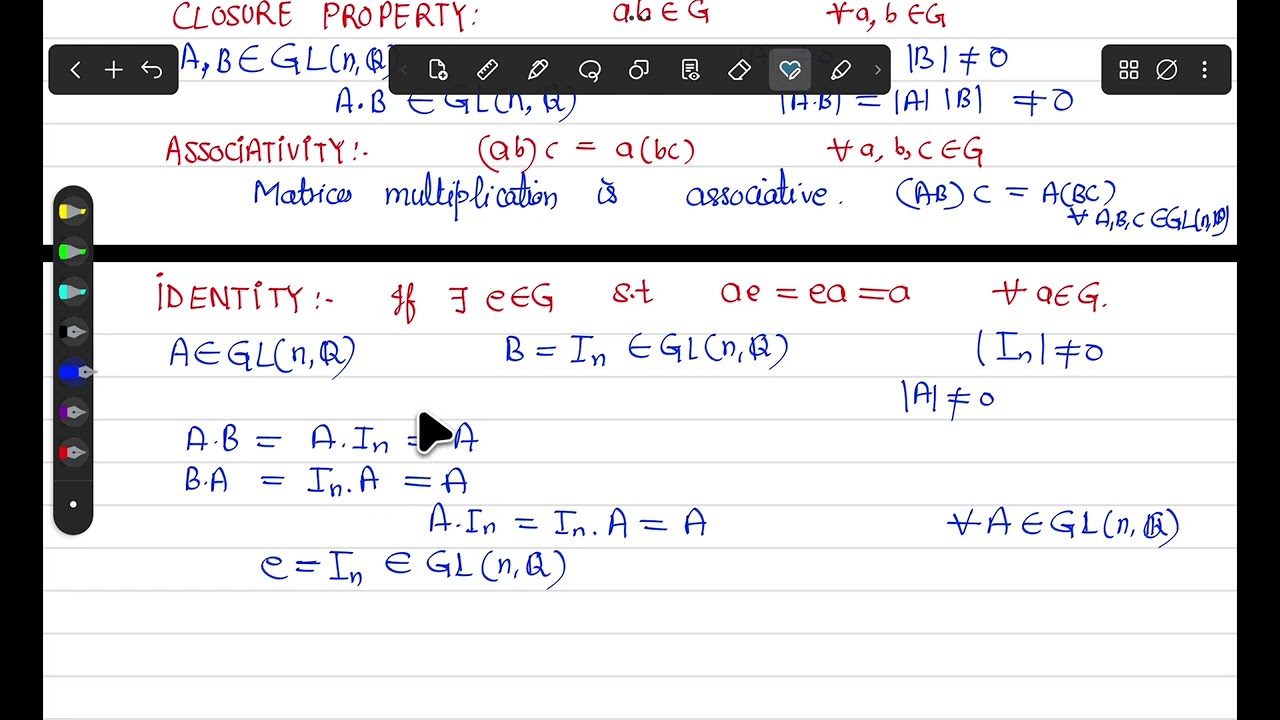 CLOSURE PROPERTY: a.b ∈ G ∀ a, b ∈ G
A, B ∈ GL(n, Q) |B| ≠ 0
A.B ∈ GL(n, Q) |A.B| = |A| |B| ≠ 0
ASSOCIATIVITY:- (ab)c = a(bc) ∀ a, b, c ∈ G
Matrices multiplication is associative. (AB)C = A(BC)
∀ A,B,C ∈ GL(n,Q)
IDENTITY:- If ∃ e ∈ G s.t ae = ea = a ∀ a ∈ G.
A ∈ GL(n, Q) B = In ∈ GL(n, Q) |In| ≠ 0
|A| ≠ 0
A.B = A.In = A
B.A = In.A = A
A.In = In.A = A ∀ A ∈ GL(n, Q)
e = In ∈ GL(n, Q)